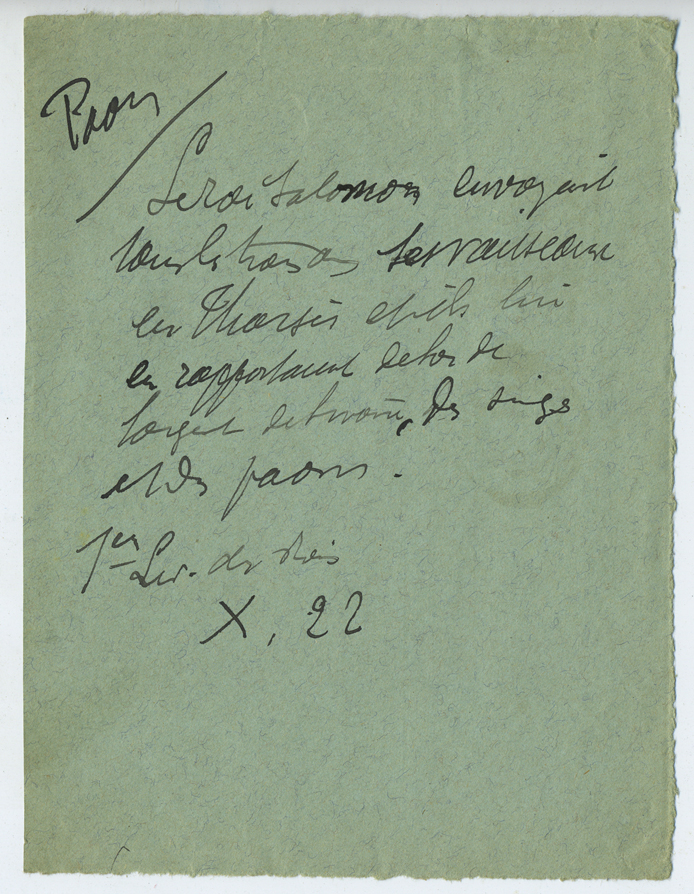 Paon
Le roi Salomon envoyait
tous les trois ans ses vaisseaux
en Tharsis et ils lui
en rapportaient de l'or de
l'argent de l'ivoire, des singes
et des paons.
1er Liv. des Rois
X, 22